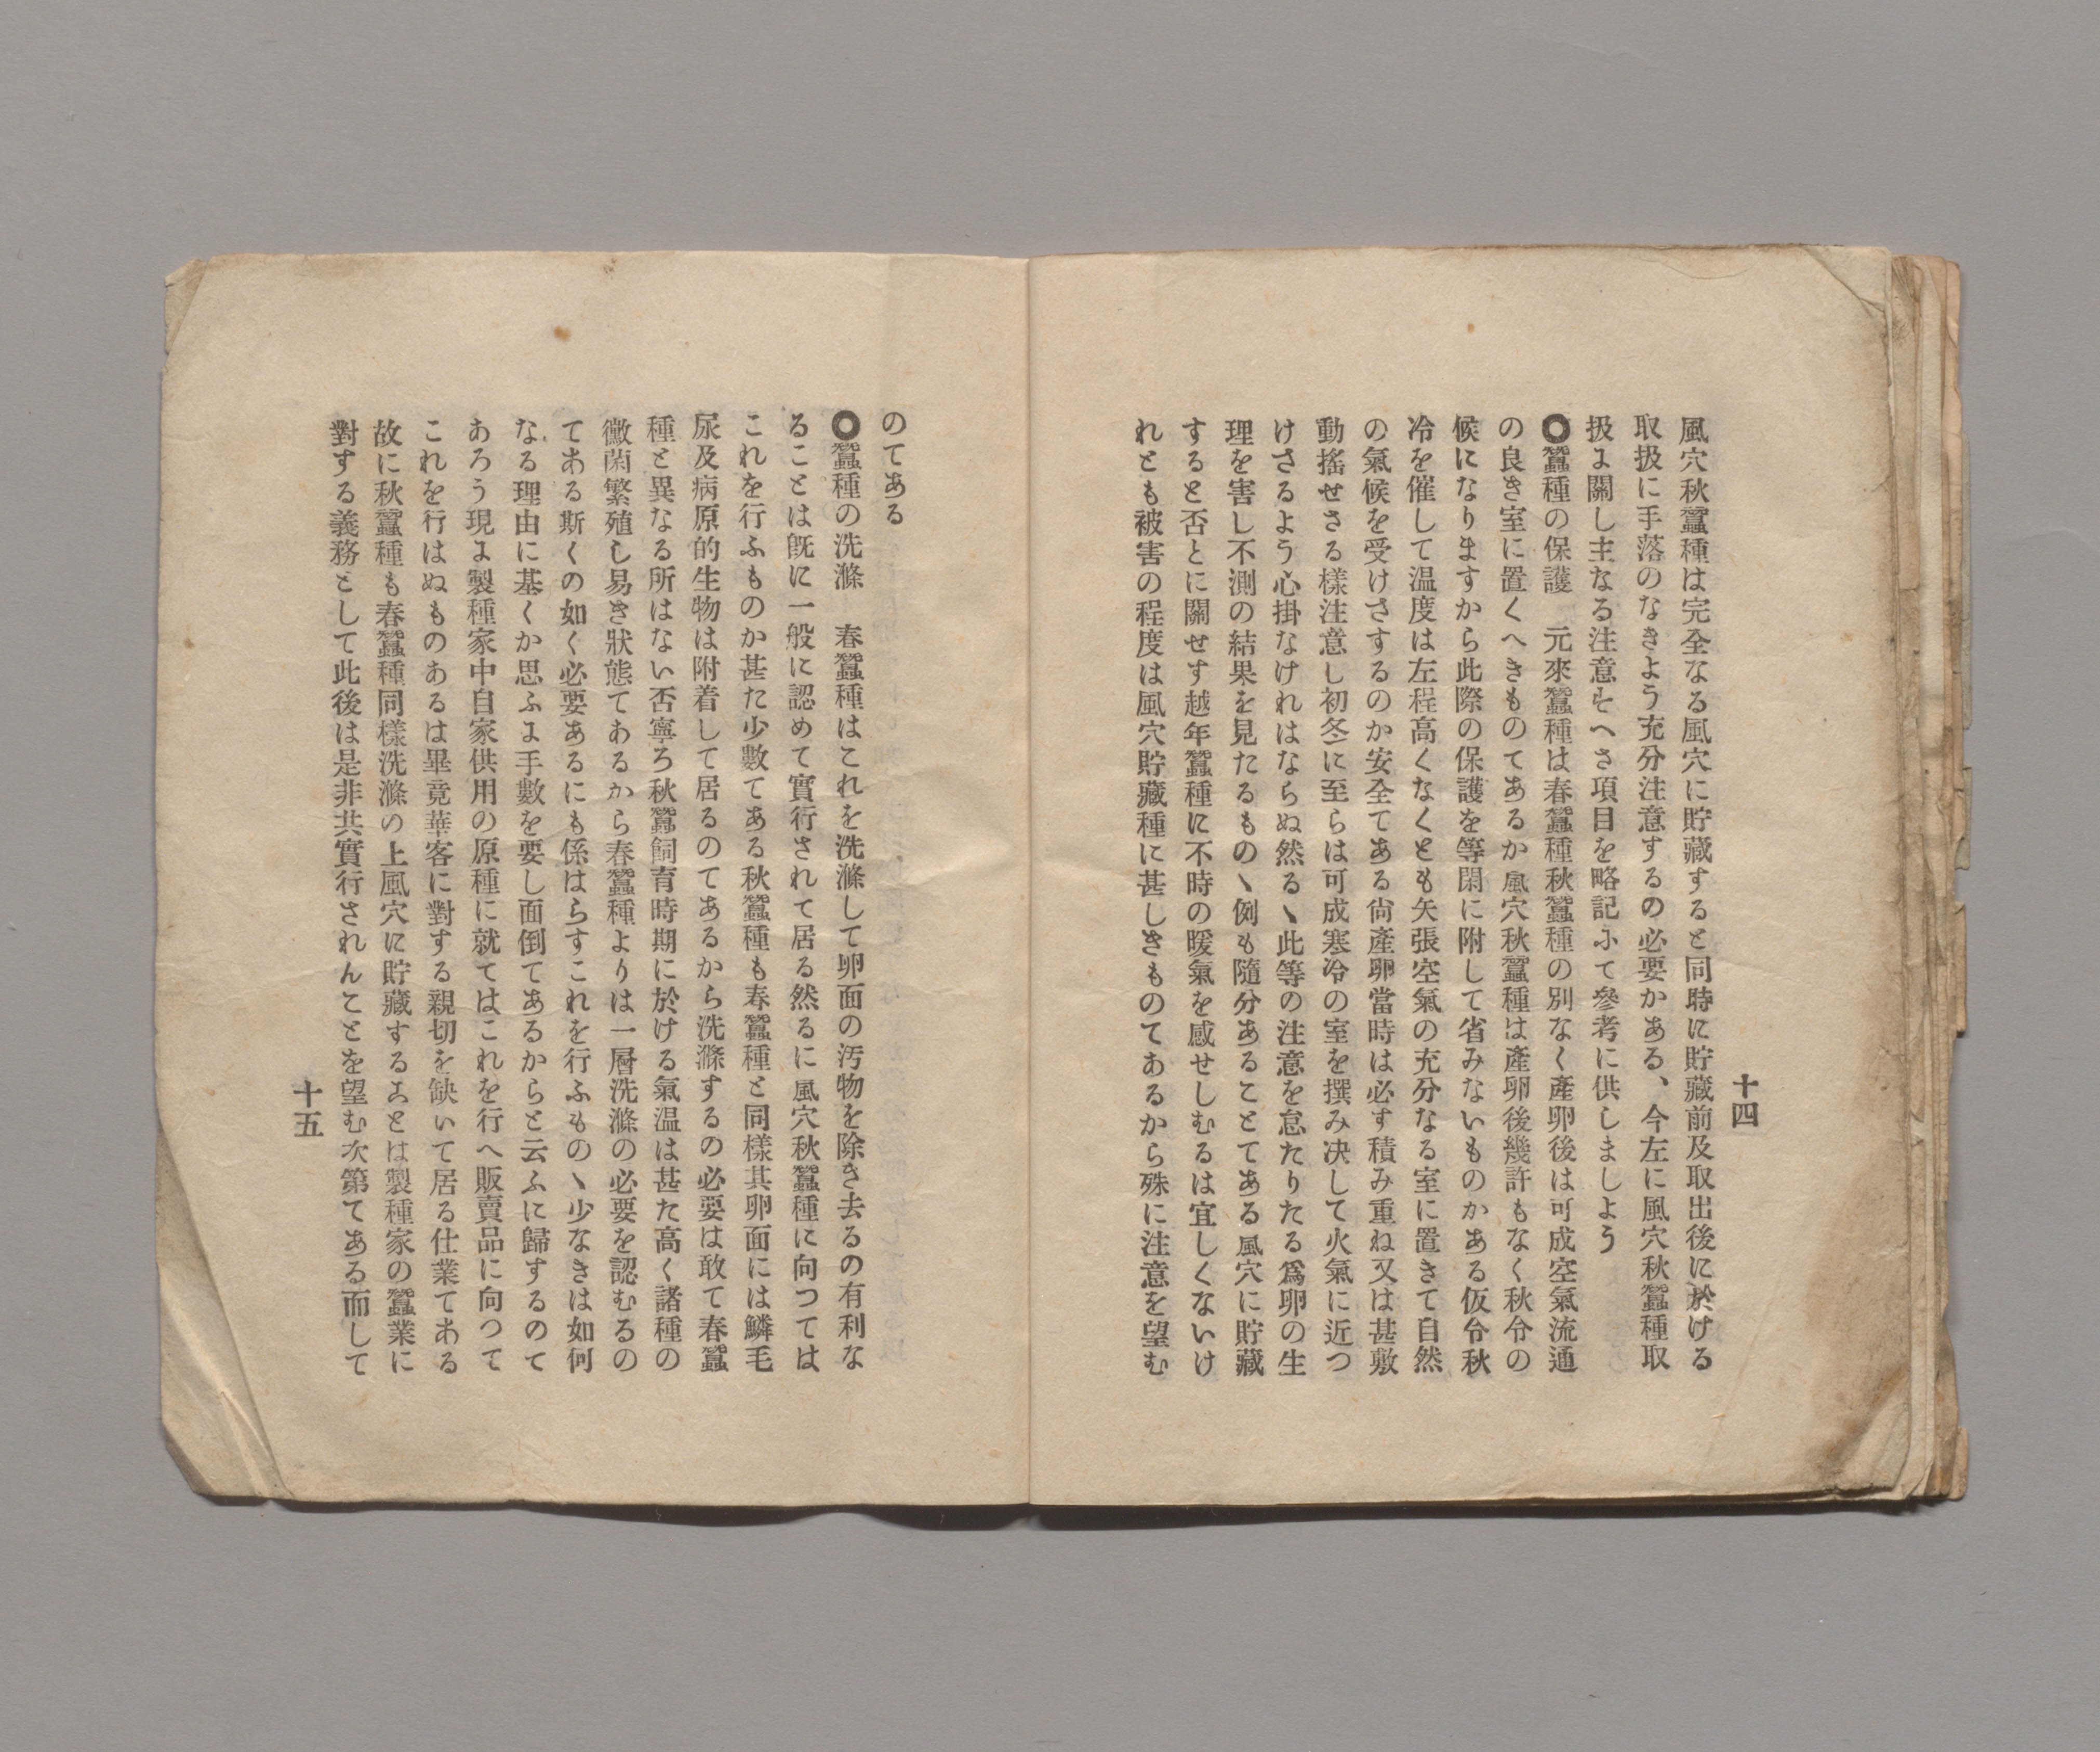 十四
風穴秋蠶種は完全なる風穴に貯藏すると同時に貯藏前及取出後に於ける
取扱に手落のなきよう充分注意するの必要かある、今左に風穴秋蠶種取
扱よ關し主なる注意すへき項目を略記ふて參考に供しましよう
◯蠶種の保護　元來蠶種は春蠶種秋蠶種の別なく產卵後は可成空氣流通
の良き室に置くへきものてあるか風穴秋蠶種は產卵後幾許もなく秋令の
候になりますから此際の保護を等閑に附して省みないものかある仮令秋
冷を催して温度は左程高くなくとも矢張空氣の充分なる室に置きて自然
の氣候を受けさするのか安全てある尙產卵當時は必す積み重ね又は甚敷
動搖せさる樣注意し初冬に至らは可成寒冷の室を撰み决して火氣に近つ
けさるよう心掛なけれはならぬ然るヽ此等の注意を怠たりたる爲卵の生
理を害し不測の結果を見たるものヽ例も隨分あることてある風穴に貯藏
すると否とに關せす越年蠶種に不時の暖氣を感せしむるは宜しくないけ
れとも被害の程度は風穴貯藏種に甚しきものてあるから殊に注意を望む
のてある
◯蠶種の洗滌　春蠶種はこれを洗滌して卵面の汚物を除き去るの有利な
ることは旣に一般に認めて實行されて居る然るに風穴秋蠶種に向つては
これを行ふものか甚た少數てある秋蠶種も春蠶種と同樣其卵面には鱗毛
尿及病原的生物は附着して居るのてあるから洗滌するの必要は敢て春蠶
種と異なる所はない否寧ろ秋蠶飼育時期に於ける氣温は甚た高く諸種の
黴菌繁殖し易き狀態てあるから春蠶種よりは一層洗滌の必要を認むるの
てある斯くの如く必要あるにも係はらすこれを行ふものヽ少なきは如何
なる理由に基くか思ふよ手數を要し面倒てあるからと云ふに歸するのて
あろう現よ製種家中自家供用の原種に就てはこれを行へ販賣品に向つて
これを行はぬものあるは畢竟華客に對する親切を缺いて居る仕業てある
故に秋蠶種も春蠶種同樣洗滌の上風穴に貯藏することは製種家の蠶業に
對する義務として此後は是非共實行されんことを望む次第てある而して
十五